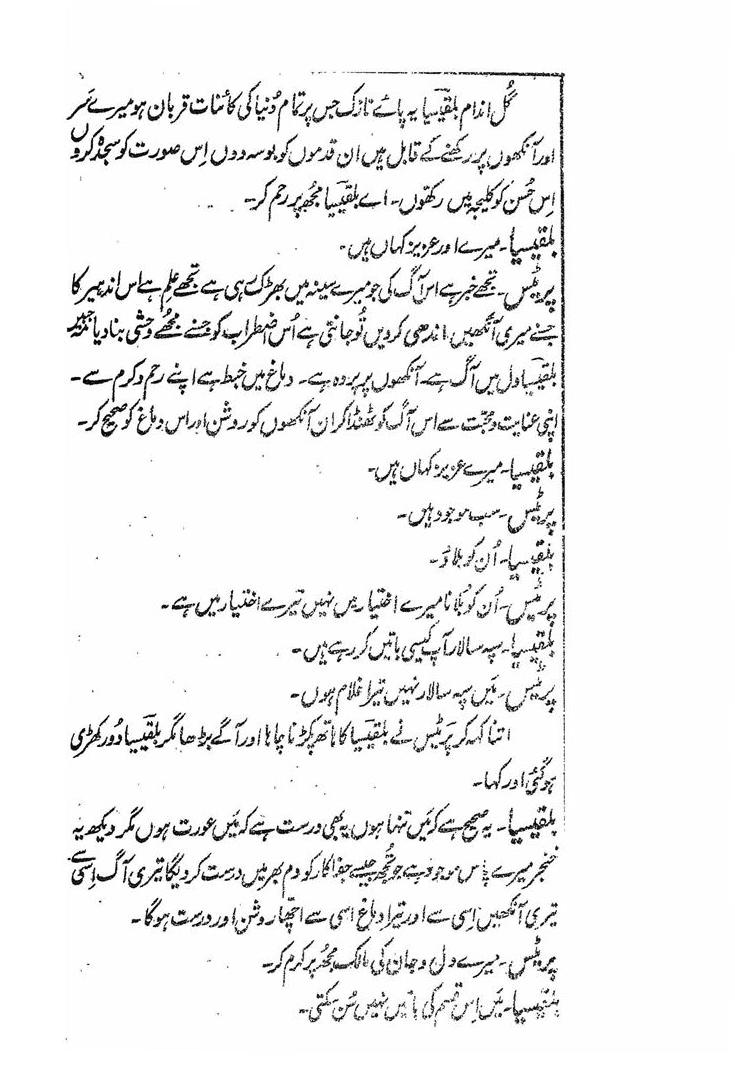 گُل اندام بلقیسیا یہ پائے نازک جس پر تمام دُنیا کی کائنات قربان ہو میرے سَر
اور آنکھوں پر رکھنے کے قابل ہیں ان قدموں کو بوسہ دوں اِس صورت کو سجدہ کروں
اِس حُسن کو کلیجہ میں رکھوں۔ اے بلقیسیا مجُھ پر رحم کر۔
بلقیسیا۔ میرے اور عزیز کہاں ہیں۔
پرٹیس۔ تجھے خبر ہے اس آگ کی جو میرے سینہ میں بھڑک رہی ہے تجھے علم ہے اس اندھیر کا
جسنے میری آنکھیں اندھی کر دیں تُو جانتی ہے اُس اضطراب کو جسنے مجُھے وحشی بنا دیا
بلقیسیا دل میں آگ ہے۔ آنکھوں پر پردہ ہے۔ دماغ میں خبط ہے اپنے رحم و کرم سے۔
اپنی عنایت و محبت سے اس آگ کو ٹھنڈا کر ان آنکھوں کو روشن اور اس دماغ کو صحیح کر۔
بلقیسیا۔ میرے عزیز کہاں ہیں۔
پرٹیس۔ سب موجود ہیں۔
بلقیسیا۔ اُن کو بلاؤ۔
پرٹیس۔ اُن کو بُلانا میرے اختیار میں نہیں تیرے اختیار میں ہے۔
بلقیسیا۔ سپہ سالار آپ کیسی باتیں کر رہے ہیں۔
پرٹیس۔ مَیں سپہ سالار نہیں تیرا غلام ہوں۔
اتنا کہہ کر پرٹیس نے بلقیسیا کا ہاتھ پکڑنا چاہا اور آگے بڑھا مگر بلقیسیا دُور کھڑی
ہو گئی اور کہا۔
بلقیسیا۔ یہ صحیح ہے کہ مَیں تنہا ہوں یہ بھی درست ہے کہ مَیں عورت ہوں مگر دیکھ یہ
خنجر میرے پاس موجود ہے جو تُجھ جیسے جفاکار کو دم بھر میں درست کر دیگا تیری آگ اِسی سے
تیری آنکھیں اِسی سے اور تیرا دماغ اسی سے اچھا روشن اور درست ہوگا۔
پرٹیس۔ میرے دل و جان کی مالک مجُھ پر کرم کر۔
بلقیسیا۔ مَیں اِس قسم کی باتیں نہیں سُن سکتی۔